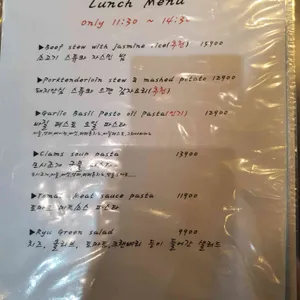 Lunch Menu
only 11:30 ~ 14:30
▶Beef stew with jasmine rice(추천) 15,900
소고기 스튜와 자스민 밥
▶Porktenderloin stew & mashed potato 12900
돼지안심 스튜와 으깬 감자요리(추천)
▶Garlic Basil Pesto oil Pasta(인기) 12900
바질 페스토 오일 파스타
▶Clams soup pasta 13900
▶Tomato Meat sauce pasta 11900
토마토 미트소스 파스타
▶Ryu Green salad 9900
치즈, 올리브, 토마토, 크랜베리 등이 들어간 샐러드